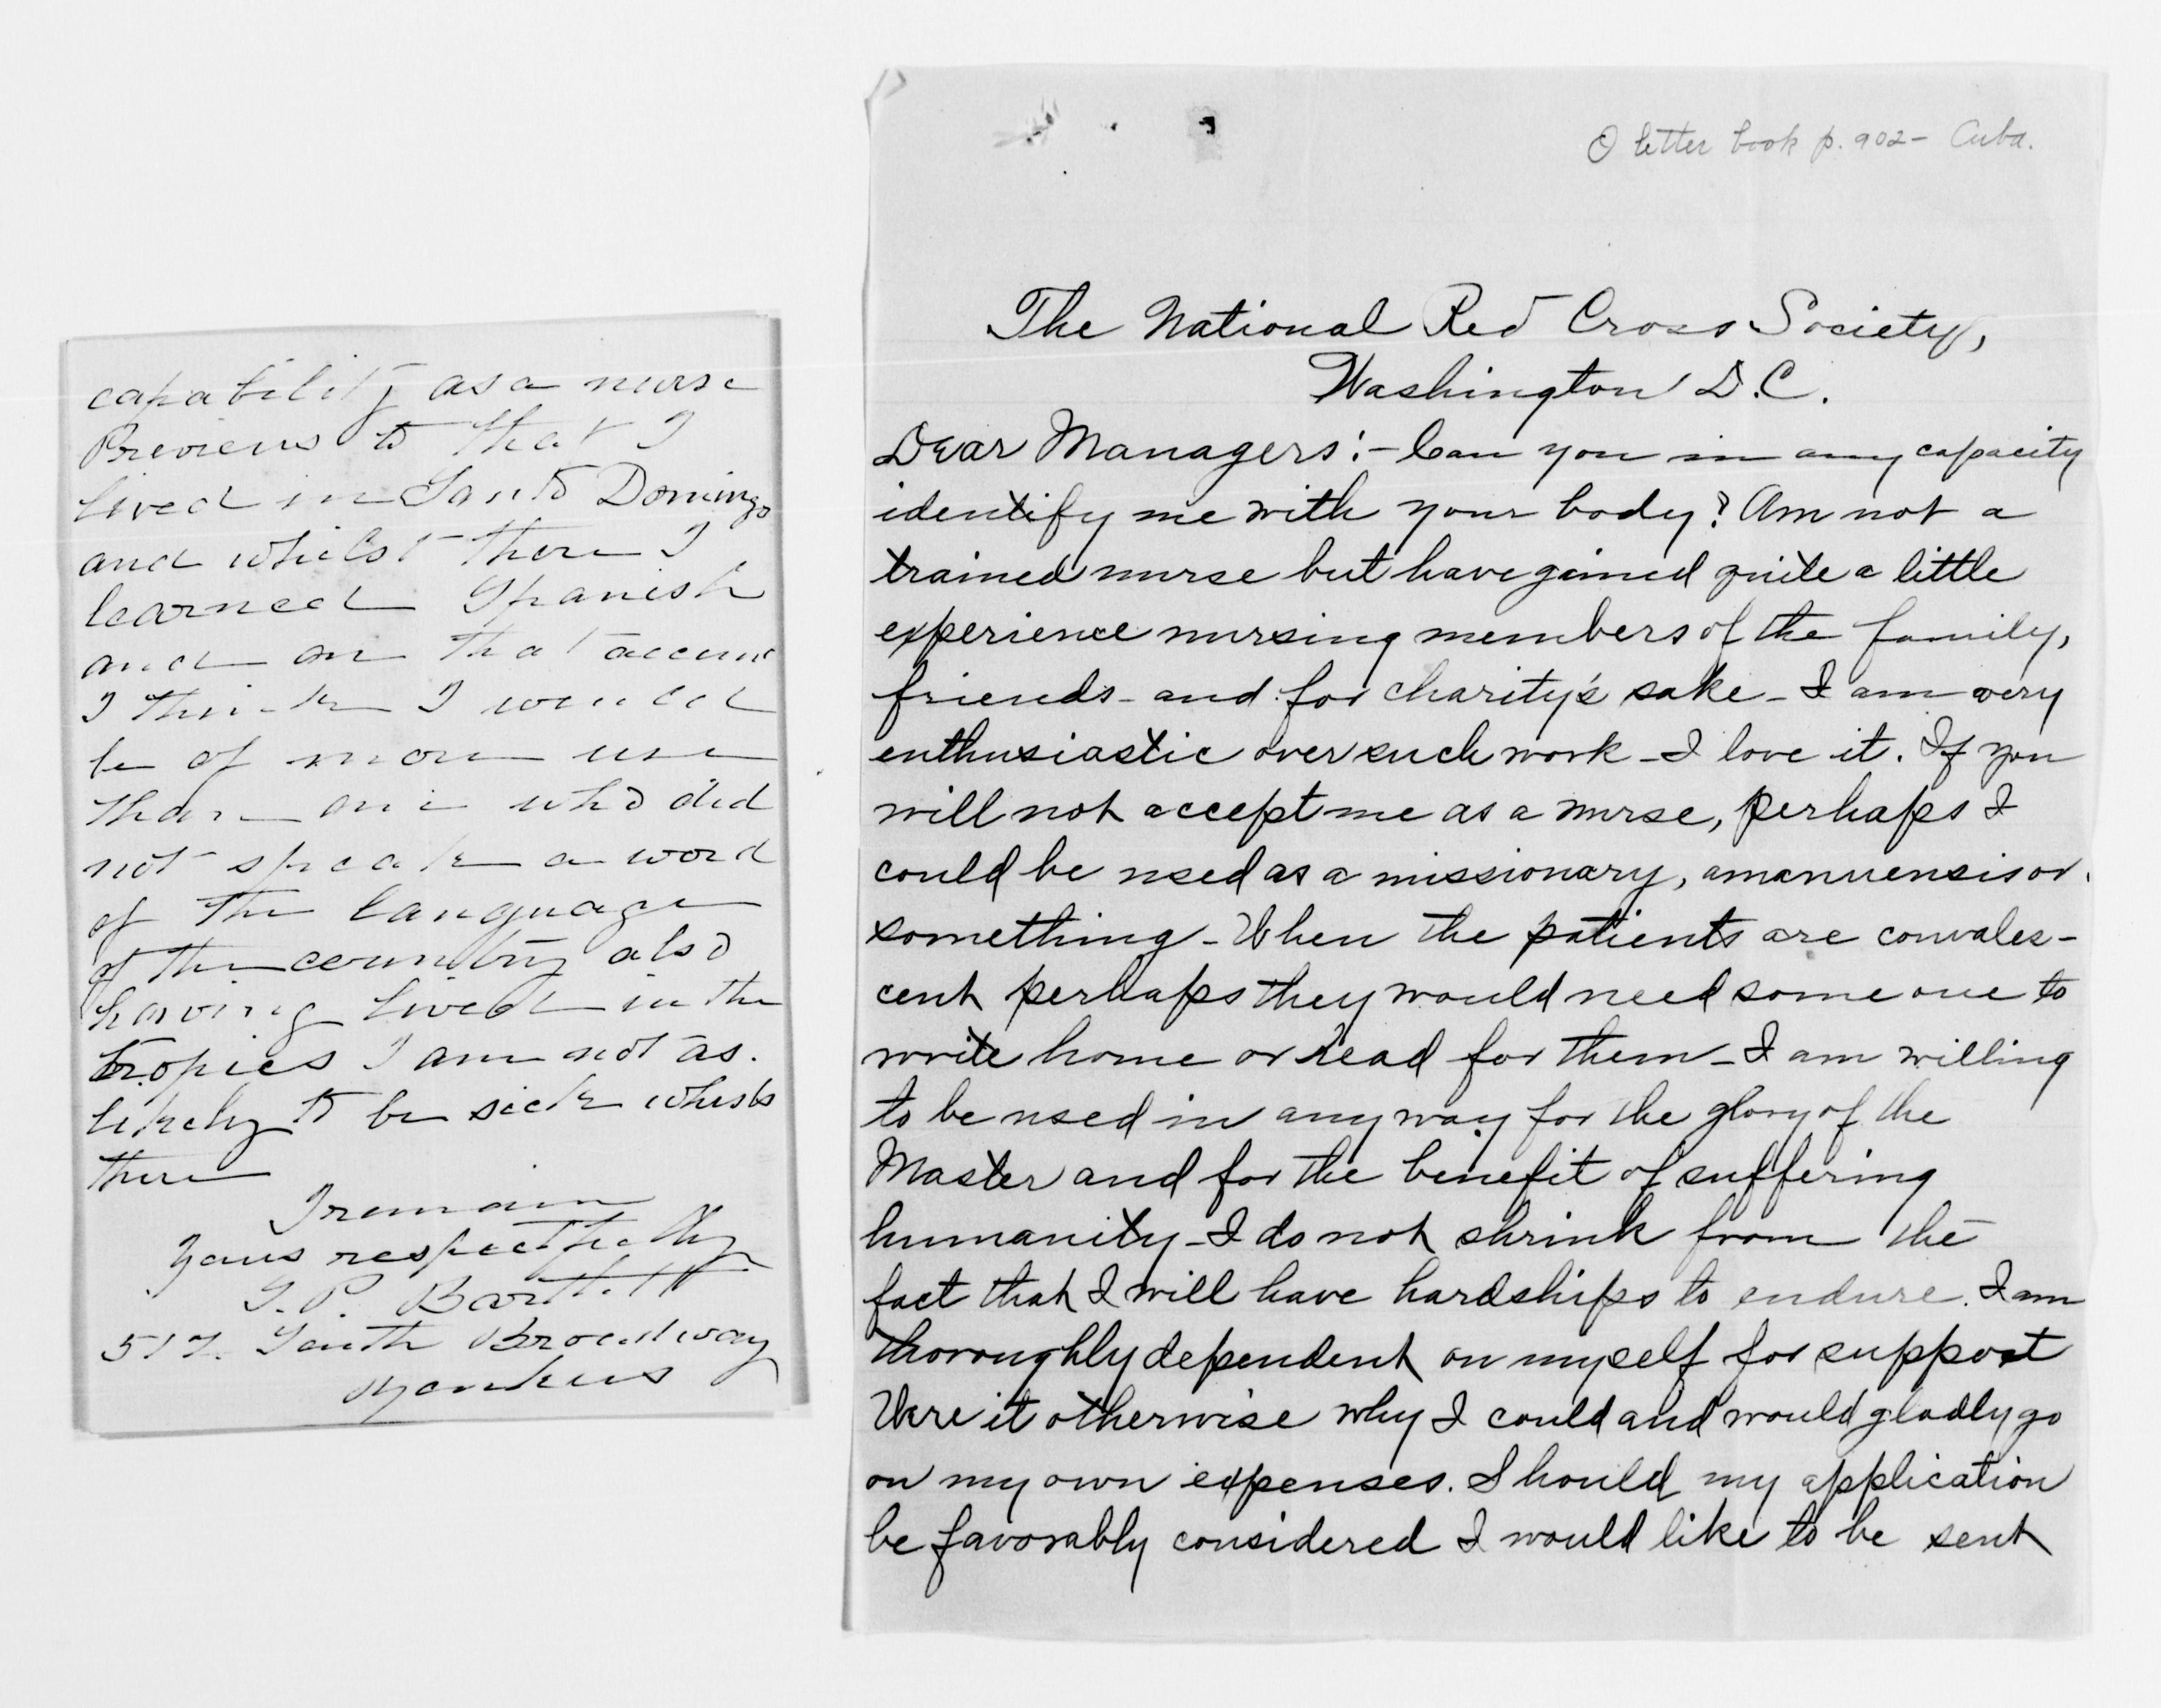 capability as a nurse
Previous to that I
lived in Santo Domingo
and whilst there I
learned Spanish
and on that account
I think I would
be of more use
than one who did
not speak a word
of the language
of the country also
having lived in the
tropics I am not as
likely to be sick whilst
there
I remain
Yours respectfully
P. Bartlett
517 South Broadway
Yonkers
letter book p. 902 - Cuba.
The National Red Cross Society,
Washington D.C.
Dear Managers:- Can you in any capacity
identify me with your body? Am not a
trained nurse but have gained quite a little
experience nursing members of the family,
friends - and for charity's sake - I am very
enthusiastic over such work - I love it. If you
will not accept me as a nurse, perhaps I
could be used as a missionary, amanuensis or
something - When the patients are convales-
cent perhaps they would need some one to
write home or read for them - I am willing
to be used in any way for the glory of the
Master and for the benefit of suffering
humanity - I do not shrink from the
fact that I will have hardships to endure. I am
thoroughly dependent on myself for support
Were it otherwise why I could and would gladly go
on my own expenses. Should my application
be favorably considered I would like to be sent